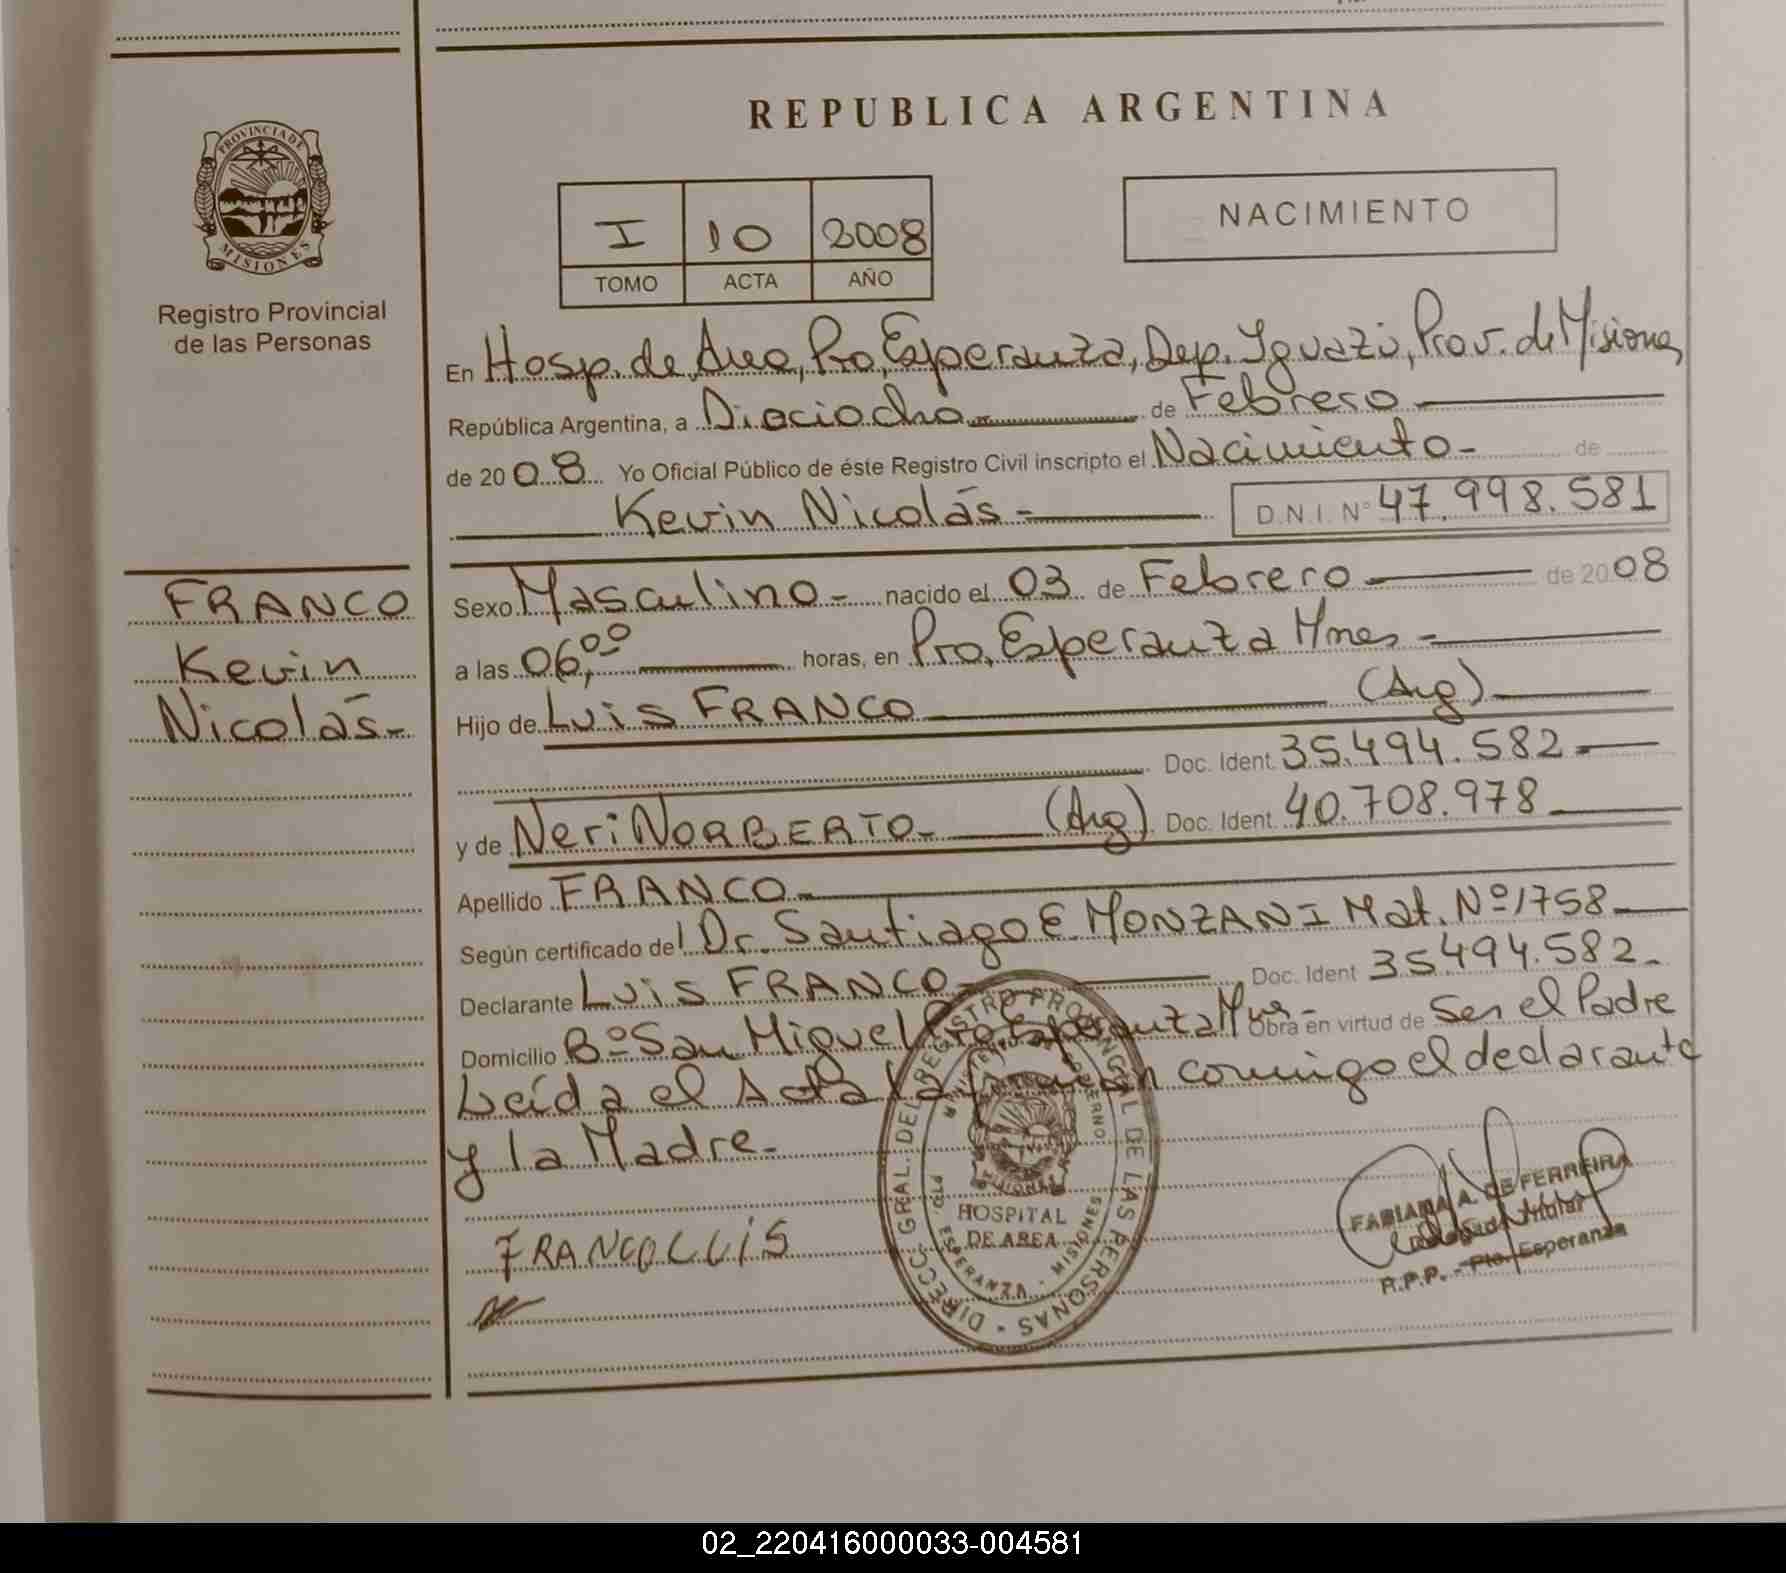 REPUBLICA ARGENTINA
PROVINCIA DE
MISIONES
Registro Provincial
de las Personas
I 10 2008
TOMO ACTA AÑO
NACIMIENTO
En Hosp. de Area, Pto. Esperanza, Dep. Iguazú, Prov. de Misiones
República Argentina, a Dieciocho de Febrero
de 2008 Yo Oficial Público de éste Registro Civil inscripto el Nacimiento - de
Kevin Nicolás - D.N.I. Nº 47.998.581
FRANCO
Kevin
Nicolás -
Sexo Masculino - nacido el 03 de Febrero de 2008
a las 06,00 horas, en Pto. Esperanza Mnes -
Hijo de Luis FRANCO (Arg)
Doc. Ident. 35.494.582 -
y de Neri NORBERTO - (Arg) Doc. Ident. 40.708.978
Apellido FRANCO -
Según certificado del Dr. Santiago E. MONZANI Mat. Nº 1758 -
Declarante Luis FRANCO - Doc. Ident 35494.582 -
Domicilio Bº San Miguel Pto Esperanza Mnes - Obra en virtud de Ser el Padre
Leída el Acta la firman conmigo el declarante
y la Madre -
FRANCO LUIS
DIRECC. GRAL. DEL REGISTRO PROVINCIAL DE LAS PERSONAS
MINISTERIO DE GOBIERNO
HOSPITAL
DE AREA
PTO. ESPERANZA - MISIONES
FABIANA A. DE FERREIRA
Delegada Titular
R.P.P. - Pto. Esperanza
02_220416000033-004581